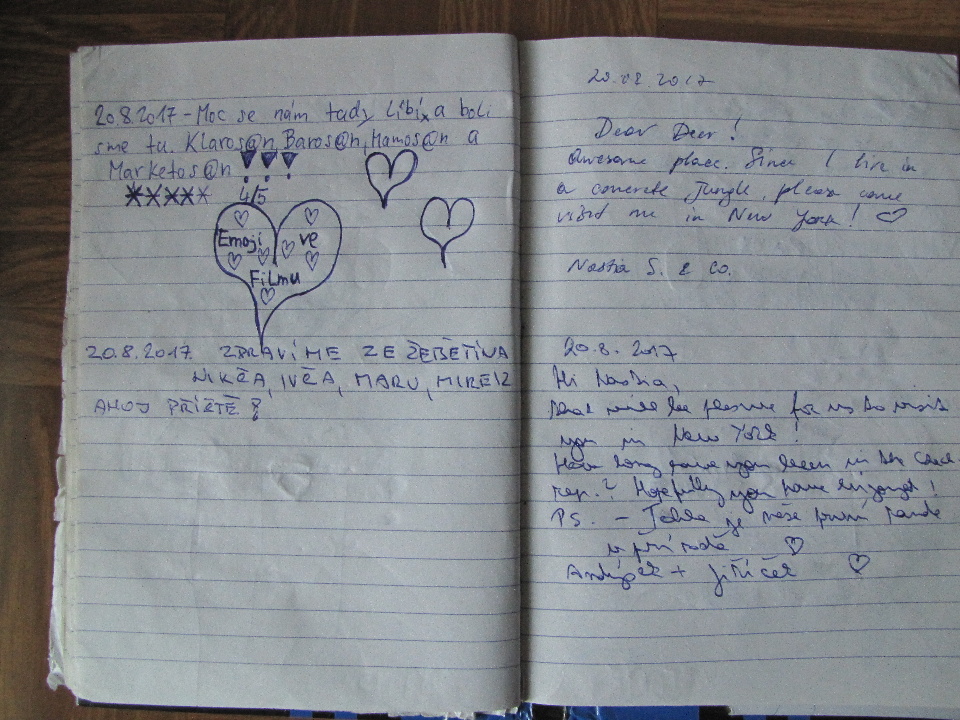 20.8.2017 - Moc se nám tady líbí a boli
sme tu. Klaros@n, Baros@n, Mamos@n a
Marketos@n !!!
***** 4/5
Emoji ve
Filmu
20.8.2017 ZDRAVÍME ZE ŽEBĚTÍNA
NIKČA, IVČA, MARU, MIREIZ
AHOJ PŘÍŽTĚ
20.08.2017
Dear Deer!
Awesome place. Since I live in
a concrete jungle, please come
visit me in New York! ♡
Nastia S. & Co.
20.8. 2017
Hi Nastia,
that will be pleasure for us to visit
you in New York!
How long have you been in the Czech
rep.? Hopefully you have enjoyed!
PS. - Tohle je naše první rande
v přírodě ♡
+ Jiříček ♡